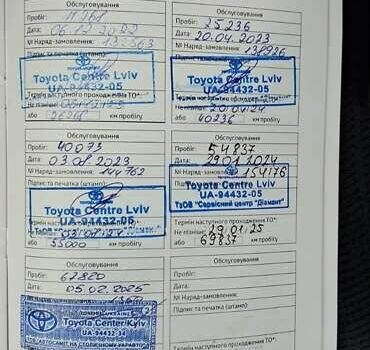 Обслуговування
Пробіг: 11 761
Дата: 06.12.2022
№ Наряд-замовлення:
Підпис та печатка (штамп)
Toyota Centre Lviv
UA-94432-05
Термін наступного проходження ТО*:
26261 км пробігу
Обслуговування
Пробіг: 25 236
Дата: 20.04.2023
№ Наряд-замовлення: 138926
Підпис та печатка (штамп)
Toyota Centre Lviv
UA-94432-05
Термін наступного проходження ТО*:
Не пізніше: 20.04.24
або 40236 км пробігу
Обслуговування
Пробіг: 40073
Дата: 03.08.2023
№ Наряд-замовлення: 144762
Підпис та печатка (штамп)
Toyota Centre Lviv
UA-94432-05
55000 км пробігу
Обслуговування
Пробіг: 54837
Дата: 29.01.2024
№ Наряд-замовлення: 154176
Toyota Centre Lviv
UA-94432-05
ТзОВ "Сервісний центр "Діамант"
Термін наступного проходження ТО*:
Не пізніше: 29.01.25
або 69837 км пробігу
Обслуговування
Пробіг: 67820
Дата: 05.02.2025
Toyota Center Kyiv
UA-94432-34
Обслуговування
Пробіг:
Дата:
№ Наряд-замовлення:
Підпис та печатка (штамп)
Термін наступного проходження ТО*:
Не пізніше:
або км пробігу